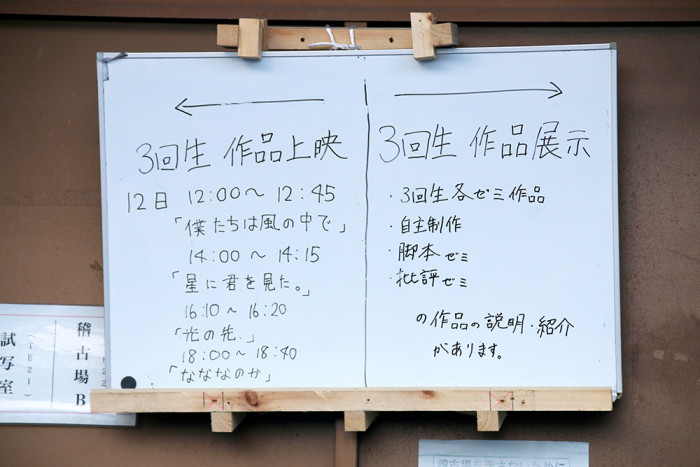 3回生 作品上映
12日 12:00〜12:45
「僕たちは風の中で」
14:00〜14:15
「星に君を見た。」
16:10〜16:20
「光の先、」
18:00〜18:40
「なななのか」
3回生 作品展示
・3回生各ゼミ作品
・自主制作
・脚本ゼミ
・批評ゼミ
の作品の説明・紹介
があります。
稽古場B
試写室